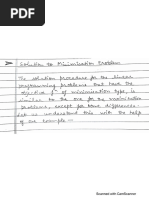 Solution to Minimisation Problem
The solution procedure for the linear
programming problems that have the
objective fⁿ of minimisation type, is
similar to the one for the maximisation
problems, except for some differences.
Let us understand this with the help
of the example :-
Scanned with CamScanner